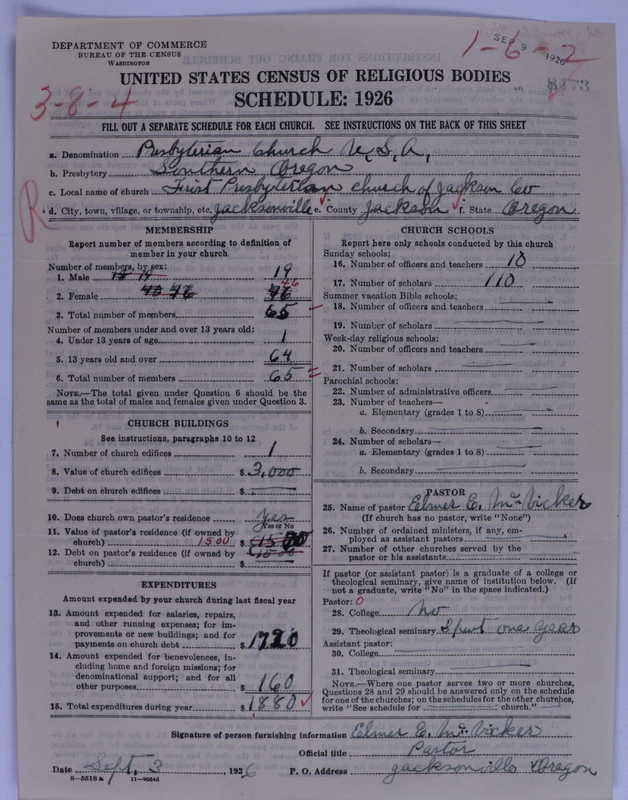 DEPARTMENT OF COMMERCE
BUREAU OF THE CENSUS
WASHINGTON
SEP 9 1926
1-6-2
8473
3-8-4
UNITED STATES CENSUS OF RELIGIOUS BODIES
SCHEDULE: 1926
FILL OUT A SEPARATE SCHEDULE FOR EACH CHURCH. SEE INSTRUCTIONS ON THE BACK OF THIS SHEET
a. Denomination Presbyterian Church U.S.A.
b. Presbytery Southern Oregon
c. Local name of church First Presbyterian church of Jackson Co
R
d. City, town, village, or township, etc. Jacksonville e. County Jackson f. State Oregon
MEMBERSHIP
Report number of members according to definition of member in your church
Number of members, by sex:
1. Male 19
2. Female 46
3. Total number of members 65
Number of members under and over 13 years old:
4. Under 13 years of age 1
5. 13 years old and over 64
6. Total number of members 65
NOTE.—The total given under Question 6 should be the same as the total of males and females given under Question 3.
CHURCH BUILDINGS
See instructions, paragraphs 10 to 12
7. Number of church edifices 1
8. Value of church edifices $ 3,000
9. Debt on church edifices $
10. Does church own pastor's residence Yes
Yes or No
11. Value of pastor's residence (if owned by church) 1500 $ 1500
12. Debt on pastor's residence (if owned by church) $
EXPENDITURES
Amount expended by your church during last fiscal year
13. Amount expended for salaries, repairs, and other running expenses; for improvements or new buildings; and for payments on church debt $ 1720
14. Amount expended for benevolences, including home and foreign missions; for denominational support; and for all other purposes $ 160
15. Total expenditures during year $ 1880
CHURCH SCHOOLS
Report here only schools conducted by this church
Sunday schools:
16. Number of officers and teachers 10
17. Number of scholars 110
Summer vacation Bible schools:
18. Number of officers and teachers
19. Number of scholars
Week-day religious schools:
20. Number of officers and teachers
21. Number of scholars
Parochial schools:
22. Number of administrative officers
23. Number of teachers—
a. Elementary (grades 1 to 8)
b. Secondary
24. Number of scholars—
a. Elementary (grades 1 to 8)
b. Secondary
PASTOR
25. Name of pastor Elmer E. McVicker
(If church has no pastor, write "None")
26. Number of ordained ministers, if any, employed as assistant pastors
27. Number of other churches served by the pastor or his assistants
If pastor (or assistant pastor) is a graduate of a college or theological seminary, give name of institution below. (If not a graduate, write "No" in the space indicated.)
Pastor: 0
28. College No
29. Theological seminary Spent one year
Assistant pastor:
30. College
31. Theological seminary
NOTE.—Where one pastor serves two or more churches, Questions 28 and 29 should be answered only on the schedule for one of the churches; on the schedules for the other churches, write "See schedule for church."
Signature of person furnishing information Elmer E. McVicker
Official title Pastor
Date Sept. 3 1926 P. O. Address Jacksonville Oregon